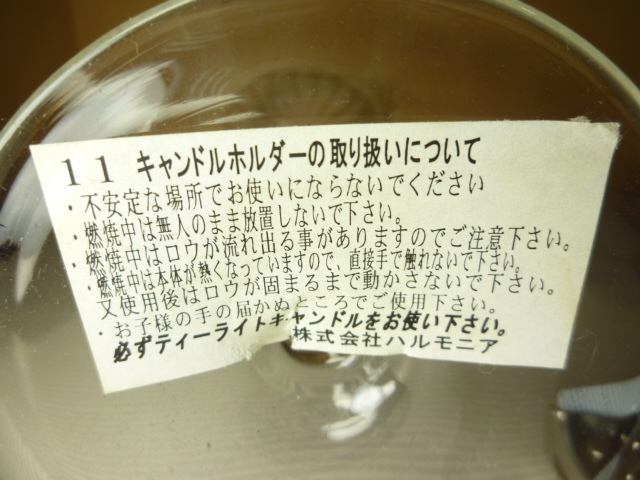 11 キャンドルホルダーの取り扱いについて
・不安定な場所でお使いにならないでください
・燃焼中は無人のまま放置しないで下さい。
・燃焼中はロウが流れ出る事がありますのでご注意下さい。
・燃焼中は本体が熱くなっていますので、直接手で触れないで下さい。
又使用後はロウが固まるまで動かさないで下さい。
・お子様の手の届かぬところでご使用下さい。
必ずティーライトキャンドルをお使い下さい。
株式会社ハルモニア